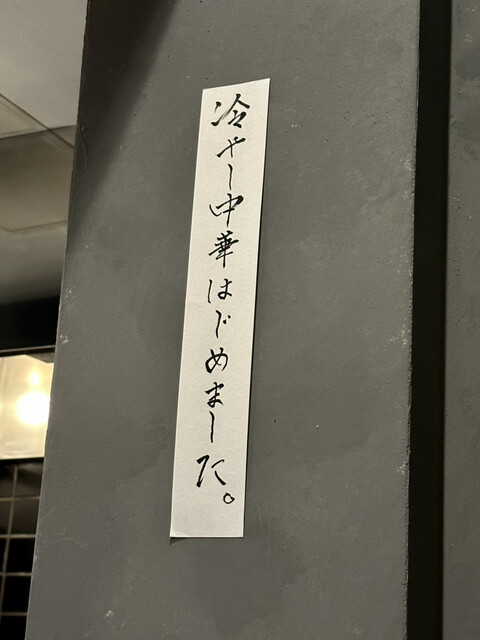 冷やし中華はじめました。